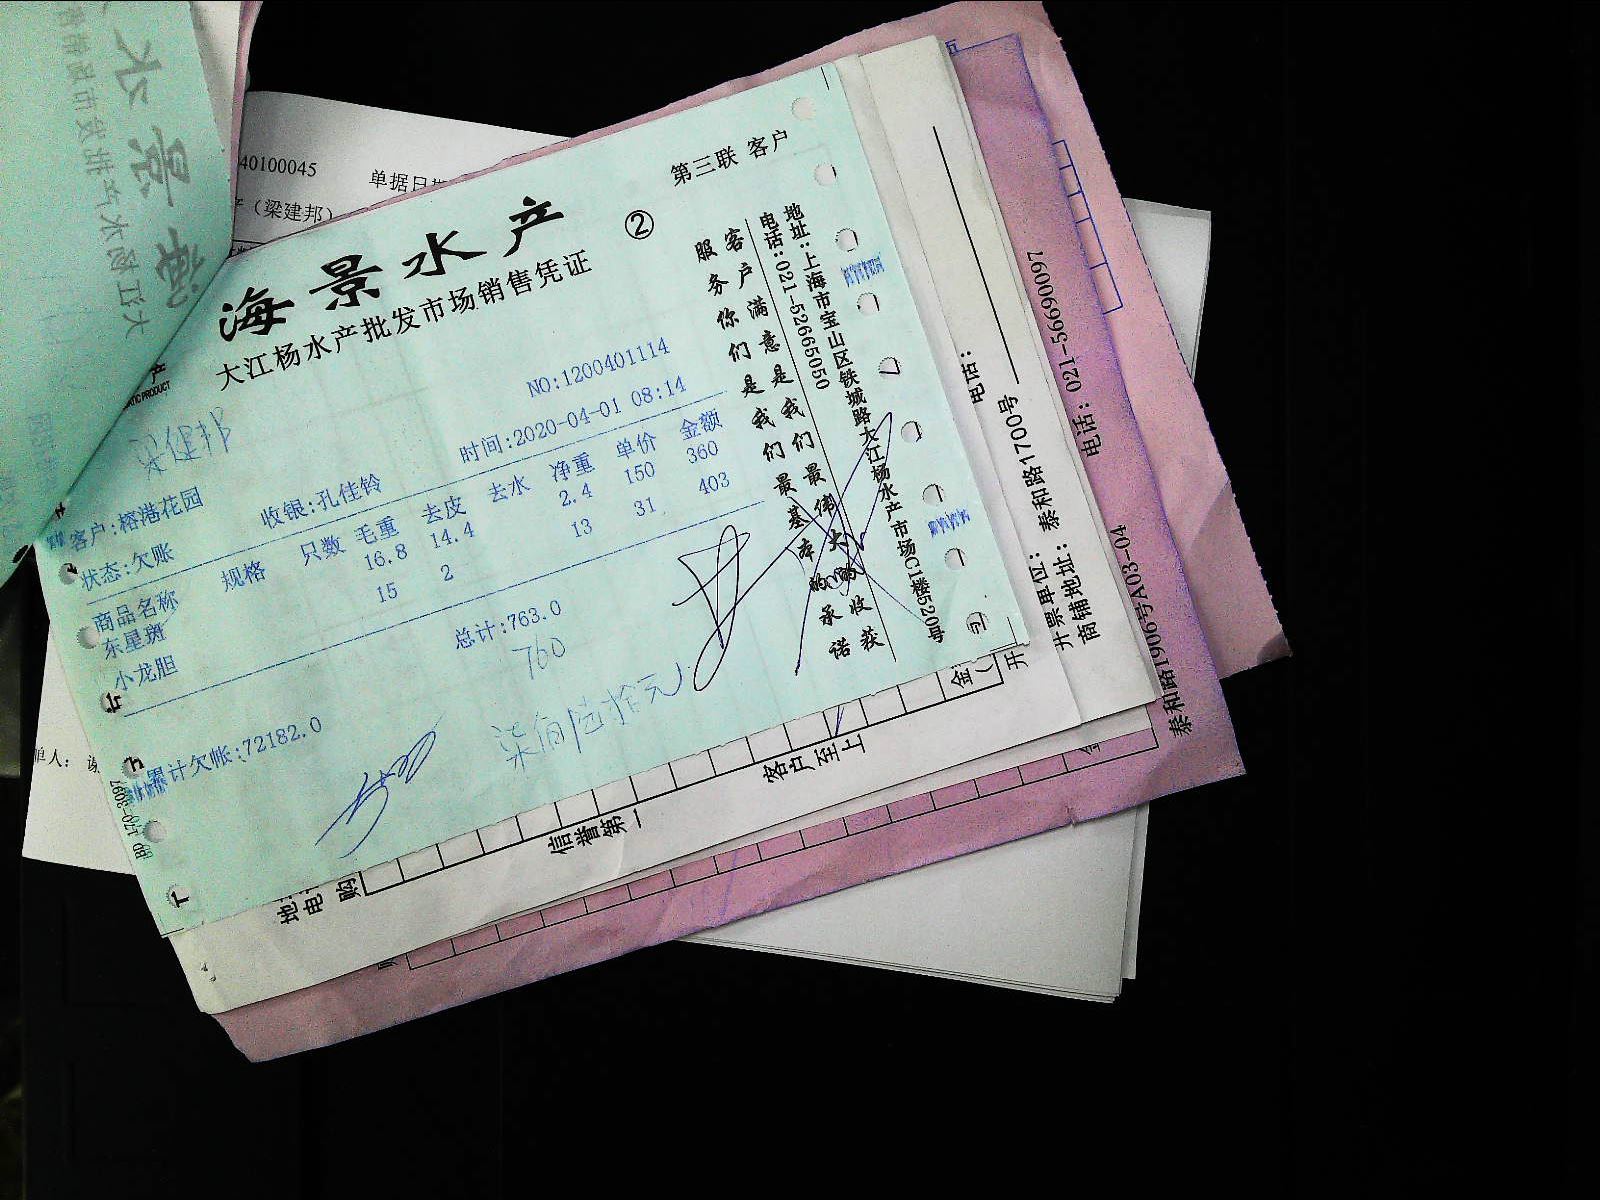 海景水产
②
第三联 客户
大江杨水产批发市场销售凭证
NO:1200401114
梁健邦
时间:2020-04-01 08:14
客户:榕港花园
收银:孔佳铃
状态:欠账
商品名称 规格 只数 毛重 去皮 去水 净重 单价 金额
东星斑 16.8 14.4 2.4 150 360
小龙胆 15 2 13 31 403
总计:763.0
760
柒佰陆拾元
累计欠帐:72182.0
客户满意是我们最伟大的收获
服务你们是我们最基本的承诺
电话:021-52665050
地址:上海市宝山区铁城路大江杨水产市场C1楼520号
40100045
单据日期
(梁建邦)
单人:
BD-170-3097
信誉第一
客户至上
购
电话:
泰和路1700号
开票单位:
商铺地址:
电话:021-56690097
泰和路1906字A03-04